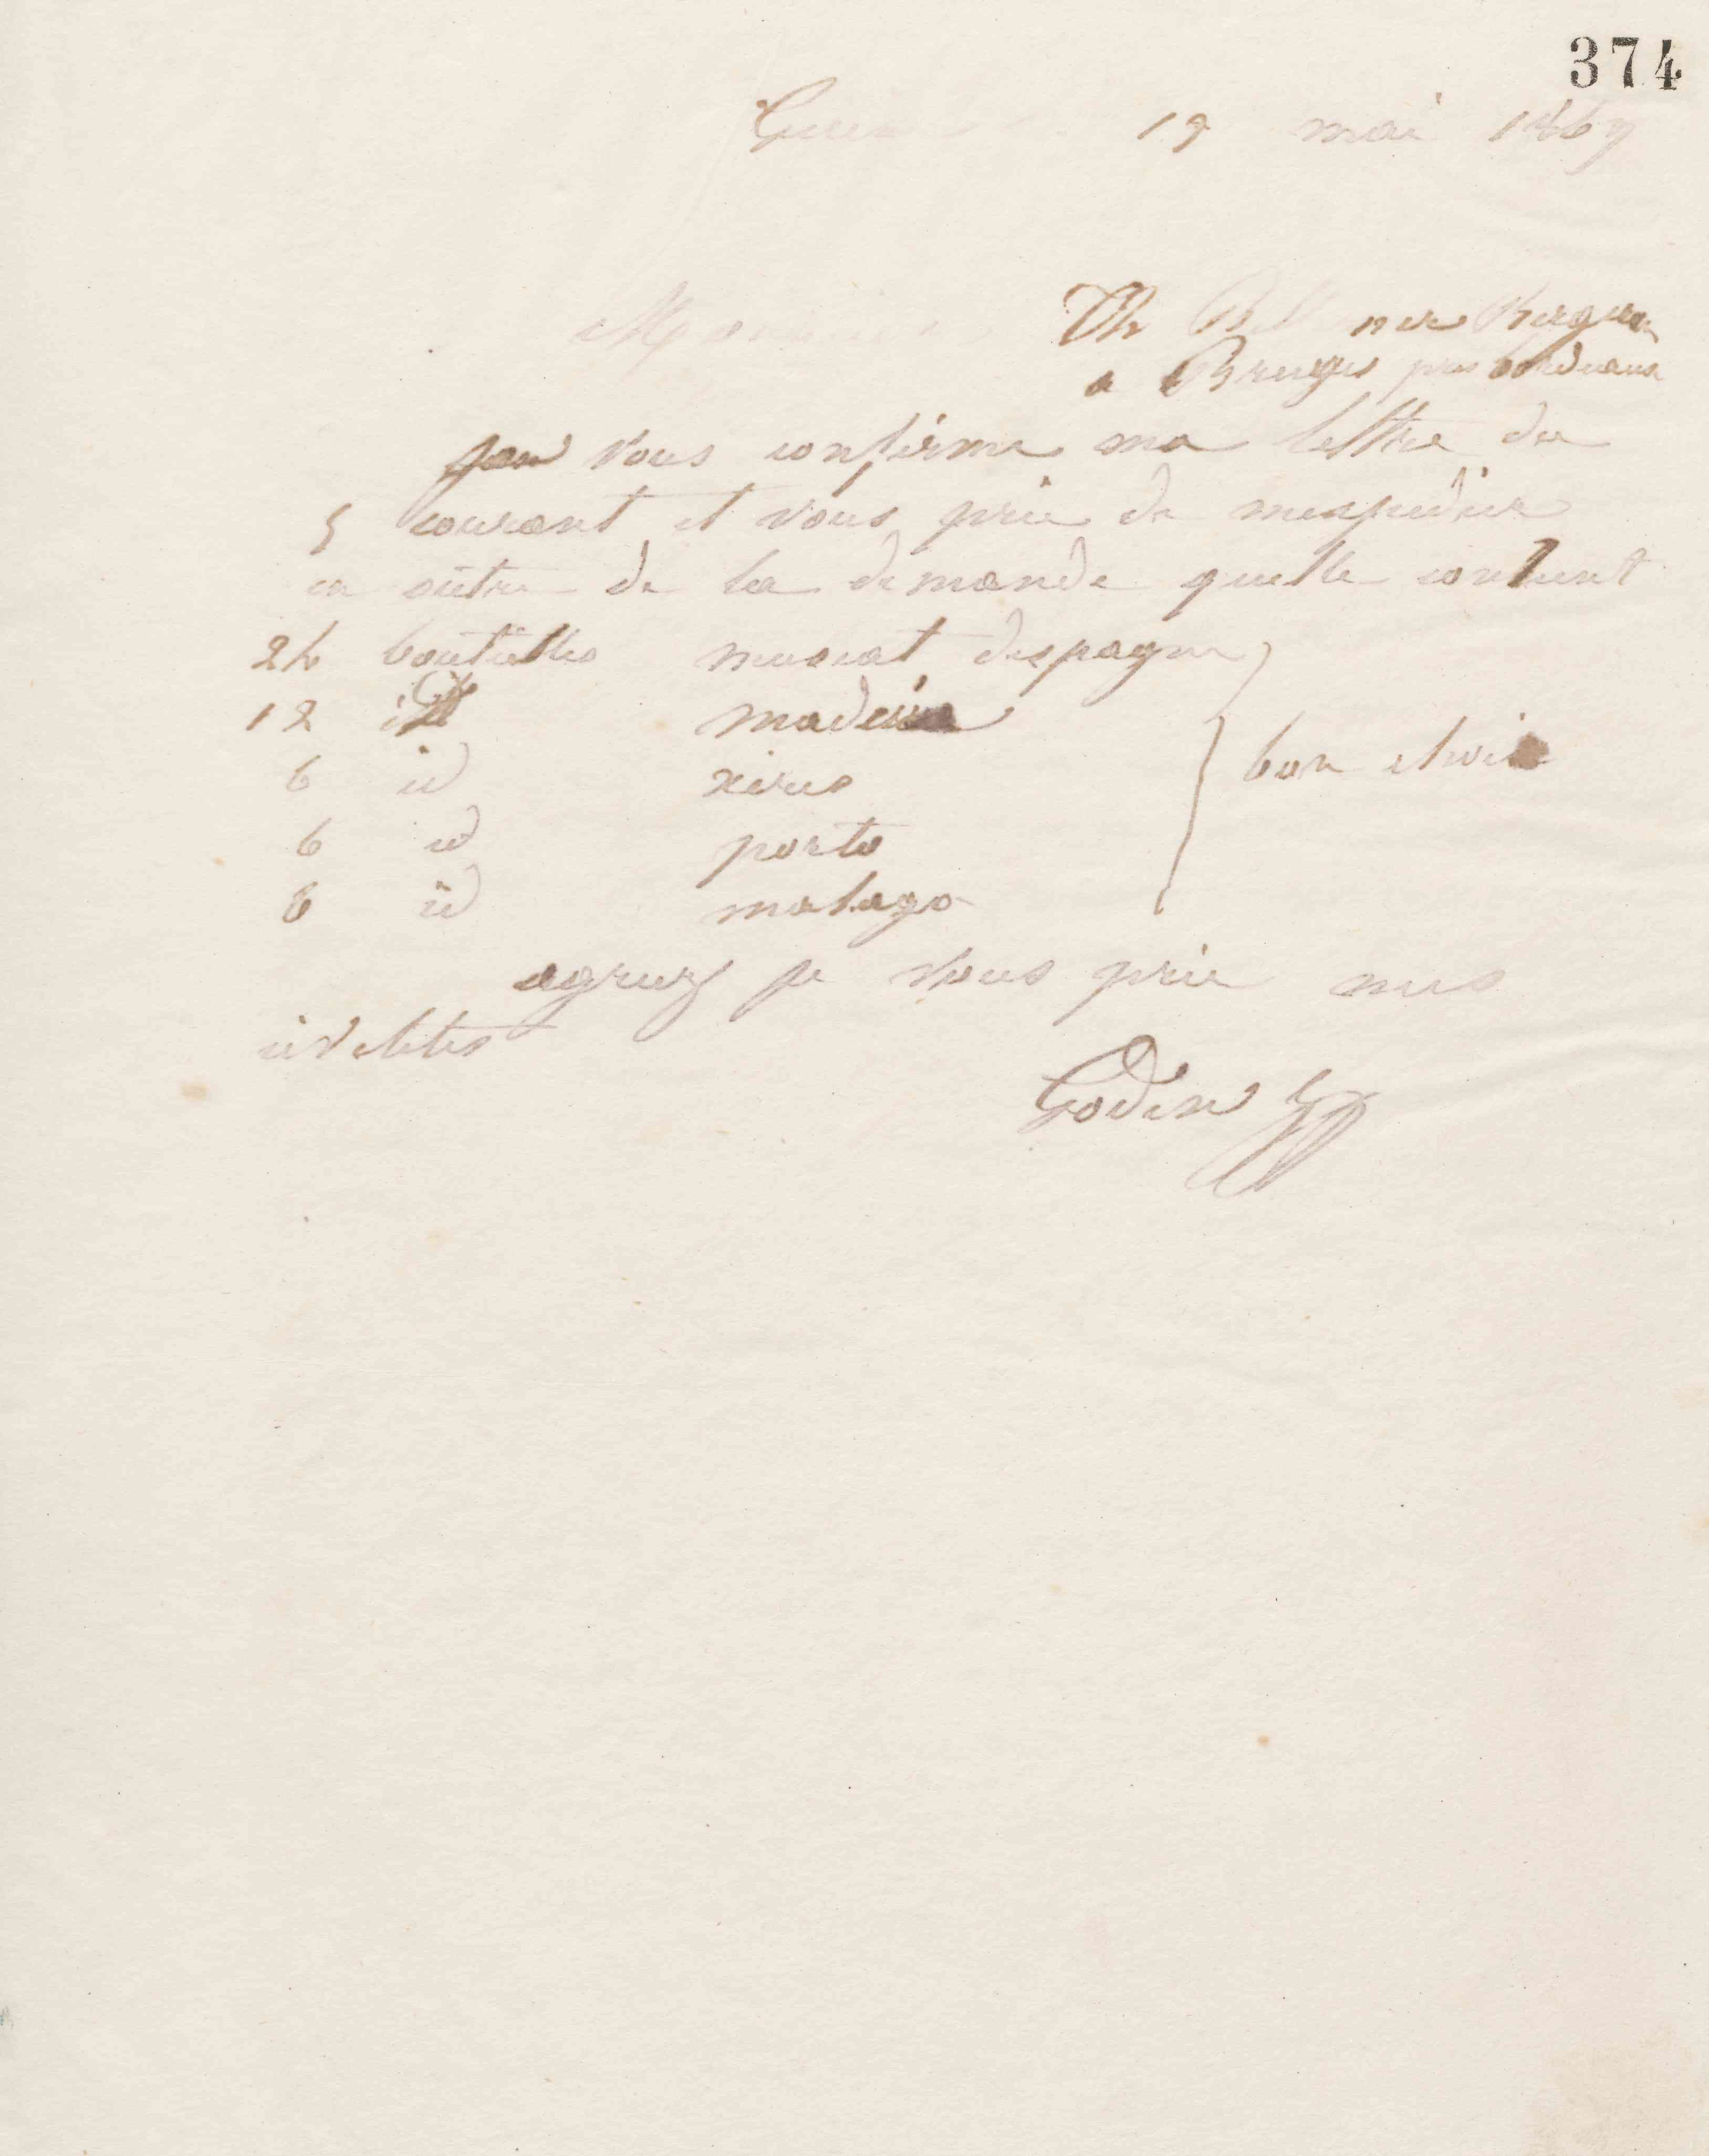 374
Guise 19 mai 1867
Monsieur Th
a Bruges pres bordeaux
vous confirme ma lettre du
5 courant et vous prie de mexpedier
en outre de la demande quelle contient
24 bouteilles muscat despagne
12 id madeira
6 id xeres bon choix
6 id porto
6 id malaga
agreez je vous prie mes
civilites
Godin